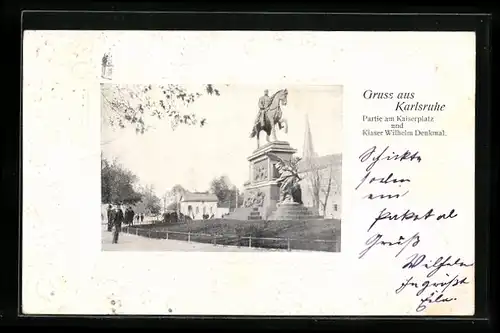 Gruss aus
Karlsruhe
Partie am Kaiserplatz
und
Kiaser Wilhelm Denkmal.
Schickte
soeben
ein
Paket ab
Gruß
Wilhelm